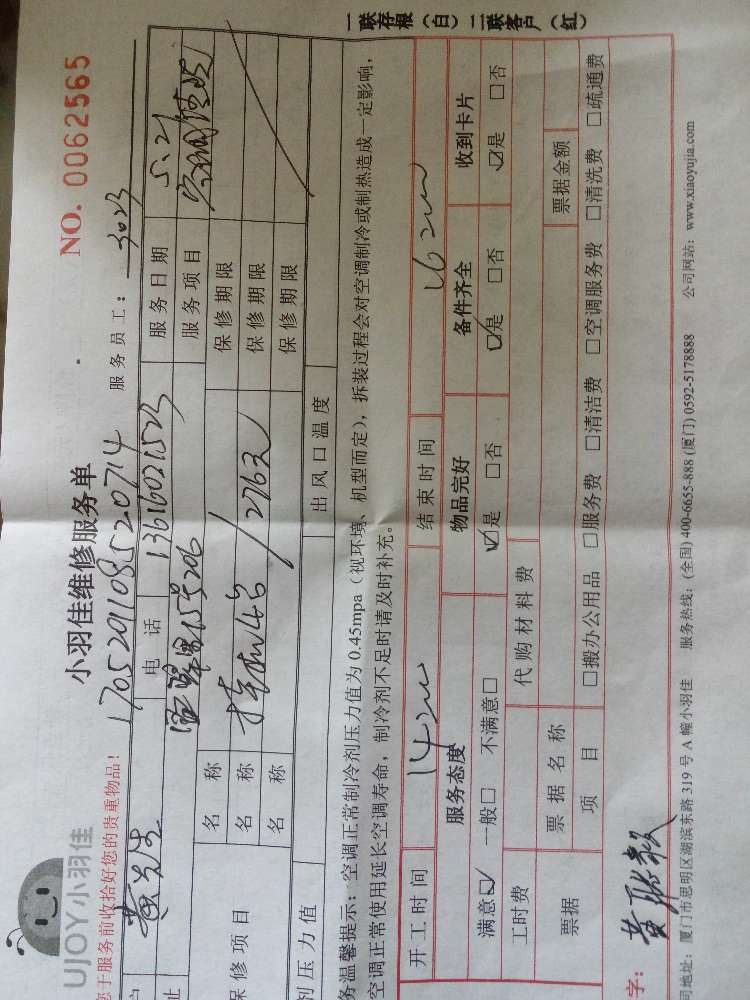 UJOY小羽佳
小羽佳维修服务单
NO. 0062565
一联存根（白） 二联客户（红）
您于服务前收拾好您的贵重物品！
17052911085520714
服务员工： 3023
户 黄先生 电话 13616021523 服务日期 5.21
址 服务项目
保修项目 名称 保修期限
名称 保修期限
名称 276元 保修期限
剂压力值 出风口温度
务温馨提示：空调正常制冷剂压力值为0.45mpa（视环境、机型而定），拆装过程会对空调制冷或制热造成一定影响，
空调正常使用延长空调寿命，制冷剂不足时请及时补充。
开工时间 结束时间
服务态度 物品完好 备件齐全 收到卡片
满意☑ 一般□ 不满意□ ☑是 □否 ☑是 □否 ☑是 □否
工时费 代购材料费
票据 票据名称 票据金额
项目 □搬办公用品 □服务费 □清洁费 □空调服务费 □清洗费 □疏通费
字：
司地址：厦门市思明区湖滨东路319号A幢小羽佳 服务热线：(全国) 400-6655-888 (厦门) 0592-5178888 公司网站：www.xiaoyujia.com